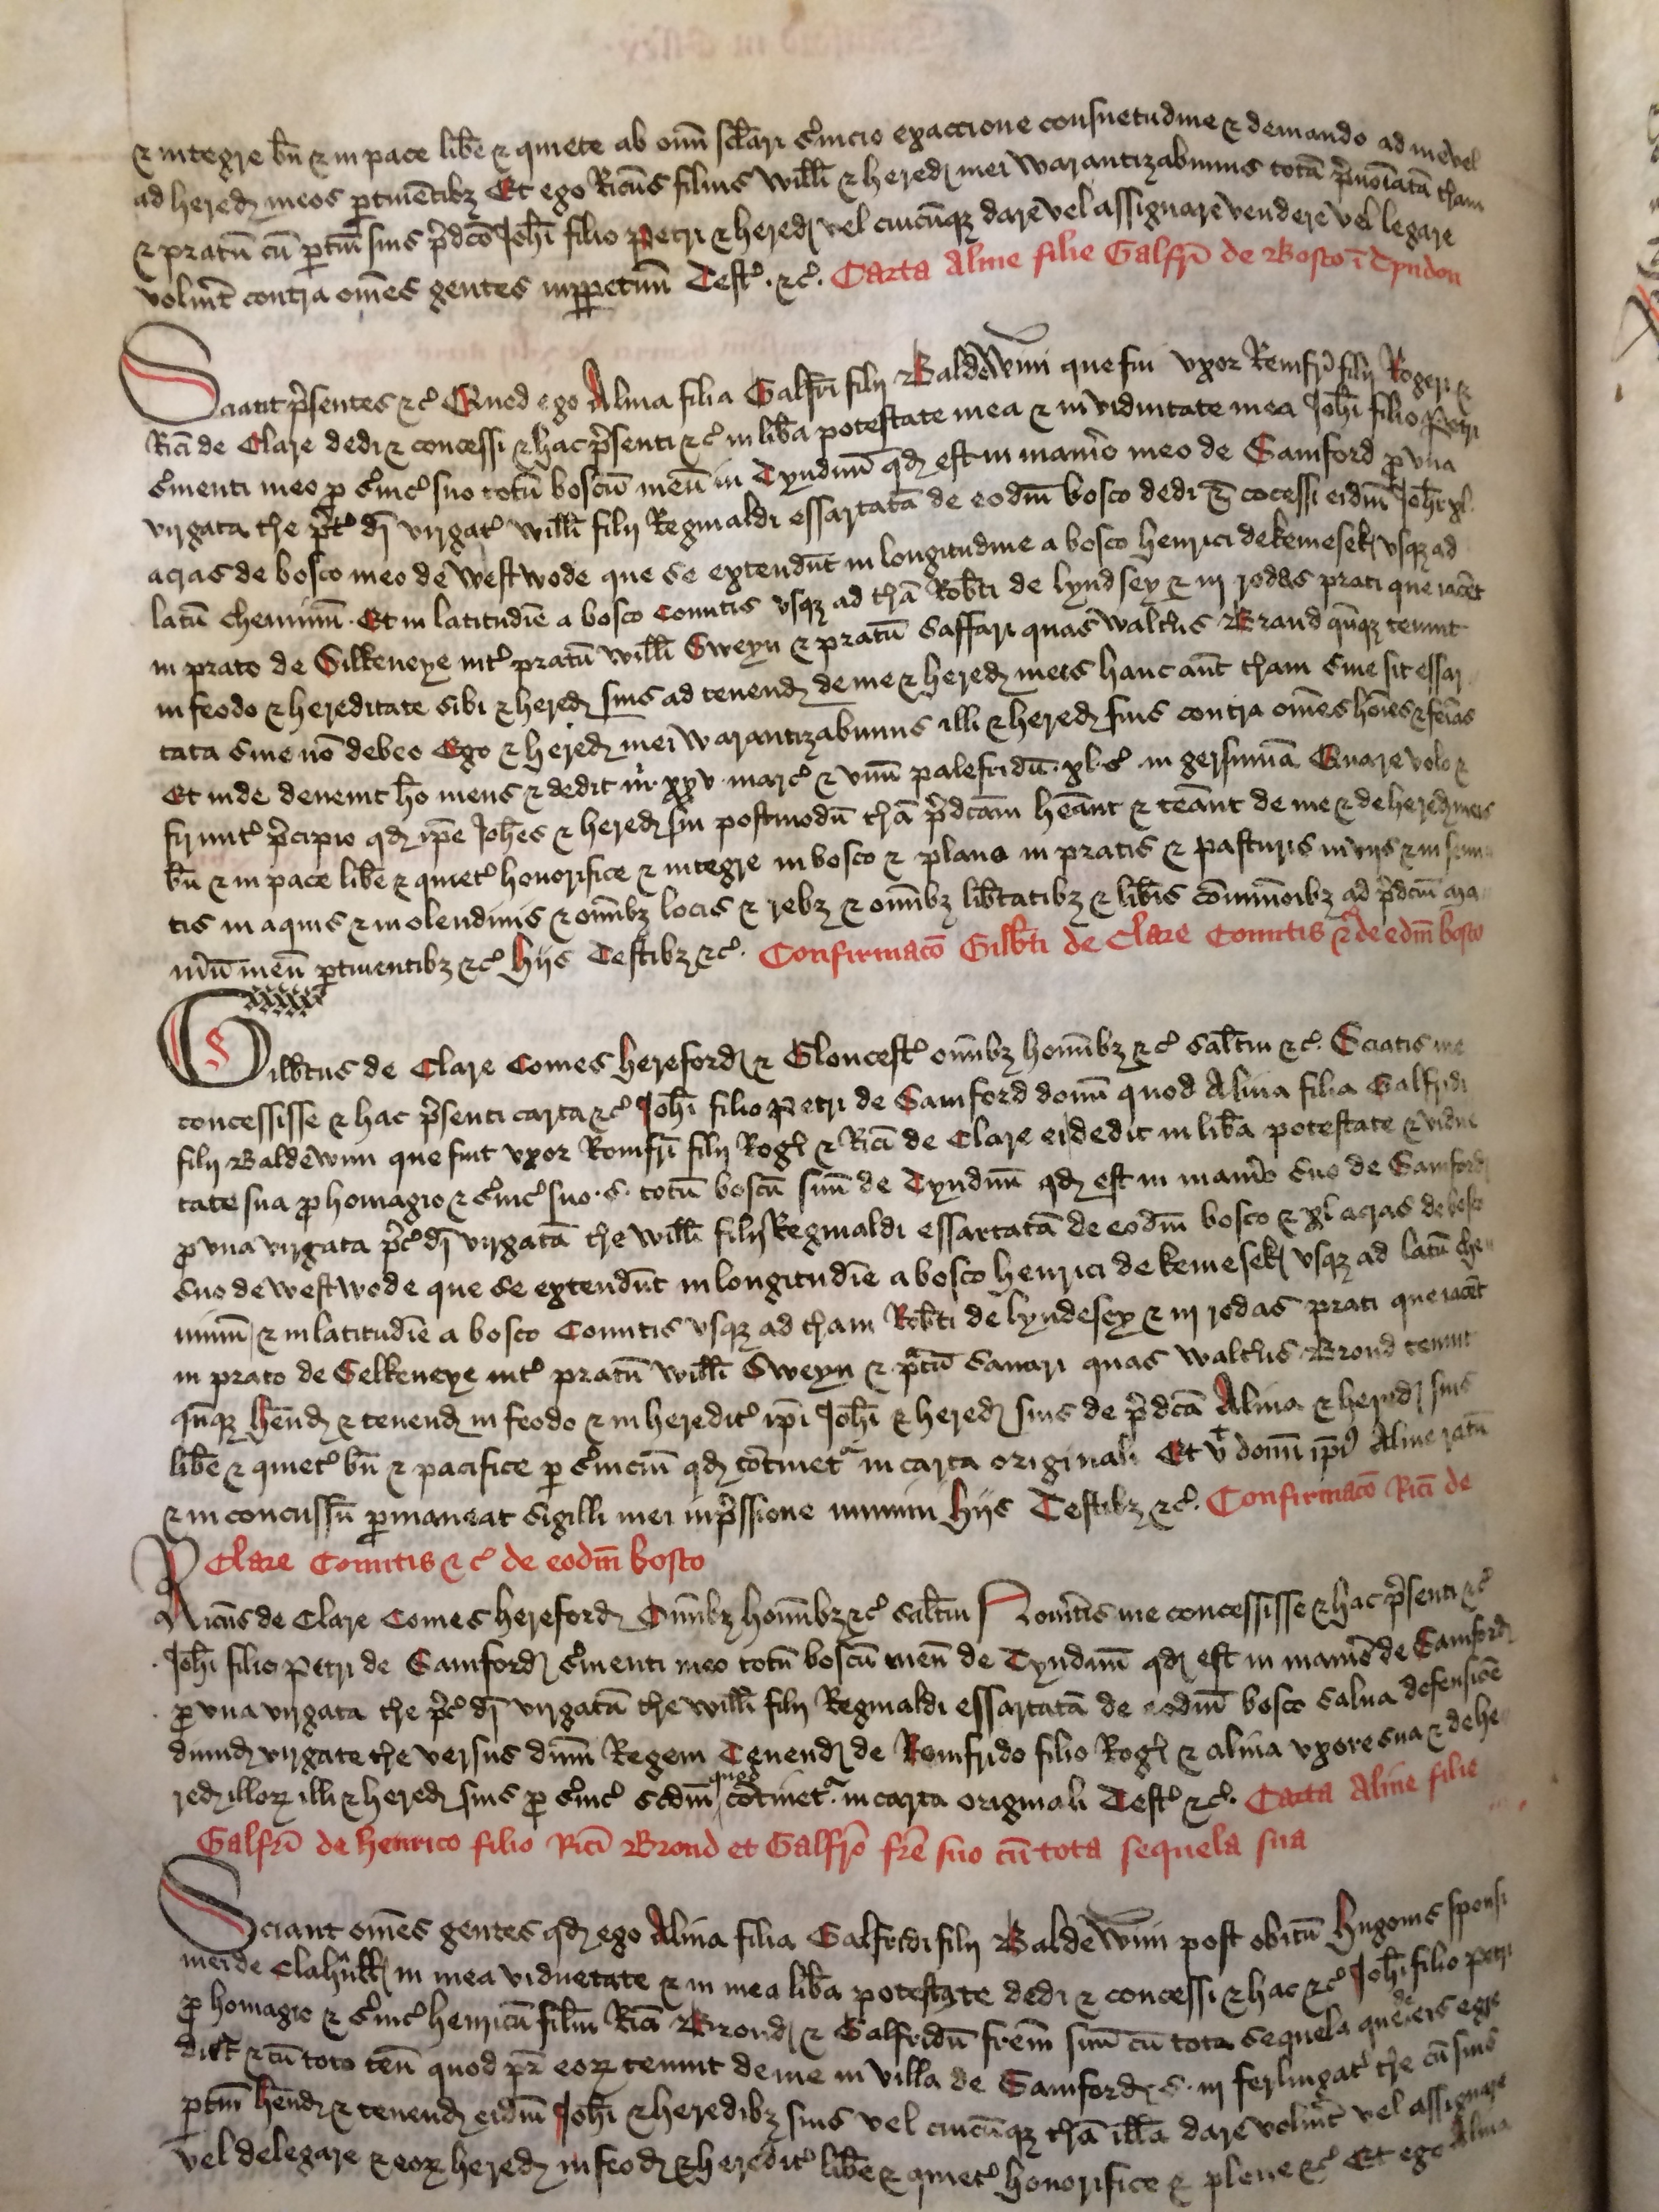 & integre bn̄ & in pace libe & quiete ab omī sc̄lari s̉uicio exaccione consuetudine & demando ad me vel
ad hered meos ptinētibȝ Et ego Ric̄us filius Willi & hered mei Warantizabimus totā p̄noīatā t̄ham
& pratū cū ptin̄ suis p̄dc̄o Joh̄i filio Petri & hered vel cuicūqȝ dare vel assignare vendere vel legare
volu̅it contra om̄es gentes inppetuū Testꝰ · &cꝰ. Carta Alme filie Galfr̄i de Bosco ī Tyndon
Sciant p̄sentes &cꝰ Qued ego Alma filia Galfr̄i filij Baldewini que fui vxor Remfr̄i filij Rogeri &
Ric̄i de Clare dedi & concessi & hac p̄senti &cꝰ in lib̄a potestate mea & in viduitate mea Joh̄i filio Petri
s̉uienti meo p s̉uicꝰ suo totū boscū meū in Tyndinū qd est in maner̄o meo de Samford p vna
virgata t̄he p̄tꝰ dī virgatꝰ Willi filij Reginaldi essartatā de eodm̄ bosco dedi & cōcessi eidm̄ Joh̄i xl
acras de bosco meo de Westwode que se extendūt in longitudine a bosco Henrici de kemesek vsqȝ ad
latū cheminū · Et in latitudīe a bosco Comitis vsqȝ ad t̄hā Rob̄ti de lyndsey & iij rodas prati que iacēt
in prato de Silkeneye intꝰ pratū Willi Sweyn & pratū Saffari quas Waltꝰus Brand qn̄qȝ tenuit
in feodo & hereditate sibi & hered suis ad tenend de me & hered meis hanc aūt t̄ham siue sit essar
tata siue nō debeo Ego & hered mei Warantizabimus illi & hered suis contra om̄es hōies & feīas
Et inde deuenit hō meus & dedit m̄ xxv marcꝰ & vnū palefridū · xl · sꝰ in gersumā Quare volo &
firmitꝰ p̄cipio qd ipe Joh̄es & hered sui postmodū t̄hā p̄dc̄am heānt & teānt de me & de hered meis
bn̄ & in pace lib̄e & quietꝰ honorifice & integre in bosco & plano in pratis & pasturis in vijs & in semi
tis in aquis & molendinis & om̄ibȝ locis & rebȝ & om̄ibȝ lib̄tatibȝ & lib̄is cōmunoibȝ ad p̄dc̄um ma
n̄iū meū ptinentibȝ &cꝰ Hijs Testibȝ &cꝰ. Confirmacō Gilb̄ti de Clare Comitis &cꝰ de eodm̄ bosco
Gilb̄tus de Clare Comes Hereford & Gloucestꝰ om̄ibȝ hom̄ibȝ &cꝰ sal̄tm &cꝰ. Sciatis me
concessisse & hac p̄senti carta &cꝰ Joh̄i filio Petri de Samford donū quod Alma filia Galfridi
filij Baldewini que fuit vxor Romfr̄i filij Roḡi & Ric̄i de Clare ei dedit in lib̄a potestate & vidui
tate sua p homagio & s̉uicꝰ suo · s · totū boscū suū de Tyndinū qd est in man̄io suo de Samford
p vna virgata p̄cꝰ dī virgatā t̄he Willi filij Reginaldi essartatā de eodm̄ bosco & xl acras de bosco
suo de westwode que se extendūt in longitudīe a bosco Henrici de kemesek vsqȝ ad latū che
minū & in latitudīe a bosco Comitis vsqȝ ad t̄ham Rob̄ti de lyndesey & iij rodas prati que iacēt
in prato de Selkeneye intꝰ pratū Willi Sweyn & p̄atū Sauari quas Waltꝰus Brond tenuit
qn̄qȝ Hēnd & tenend in feodo & in hereditꝰ ipi Joh̄i & hered suis de p̄dc̄a Alma & hered suis
lib̄e & quietꝰ bn̄ & pacifice p s̉uiciū qd cōtinetꝰ in carta originali Et vt donū ipiꝰ Alme ratū
& in concussū pmaneat sigilli mei inp̄ssione muniui Hijs Testibȝ &cꝰ. Confirmacō Ric̄i de
Clare Comitis &cꝰ de eodm̄ bosco
Ric̄us de Clare Comes Hereford Om̄ibȝ hom̄ibȝ &cꝰ sal̄tm Nou̅itis me concessisse & hac p̄senti &cꝰ
Joh̄i filio Petri de Samford s̉uienti meo totū boscū meū de Tyndinū qd est in man̄io de Samford
p vna virgata t̄he p̄cꝰ dī virgatā t̄he Willi filij Reginaldi essartatā de eodm̄ bosco salua defensiōe
dimid virgate t̄he versus dnm̄ Regem Tenend de Romfrido filio Roḡi & alma vxore sua & de he
red illorꝝ illi & hered suis p s̉uicꝰ scdm̄ quod cōtinetꝰ in carta originali Testꝰ &cꝰ. Carta Alme filie
Galfr̄i de Henrico filio Ric̄i Brond et Galfr̄o fr̄e suo cū tota sequela sua
Sciant om̄es gentes qd ego Alma filia Galfridi filij Baldewini post obitū Hugonis sponsi
mei de Clah̄ull in mea viduetate & in mea lib̄a potestate dedi & concessi & hac &cꝰ Joh̄i filio Petri
p homagio & s̉uicꝰ henricū filiū Ric̄i Brond & Galfridū frēm suū cū tota sequela que de eis egre
dit̄ & cū toto teñ quod pr̄ eorꝝ tenuit de me in villa de Samford · s · iij ferlingatꝰ t̄he cū suis
ptin̄ Hēnd & tenend eidm̄ Joh̄i & heredibȝ suis vel cuicūqȝ t̄hā illā dare volu̅it vel assignare
vel delegare & eorꝝ hered in feod & hereditꝰ lib̄e & quietꝰ honorifice & plene &cꝰ Et ego Alma